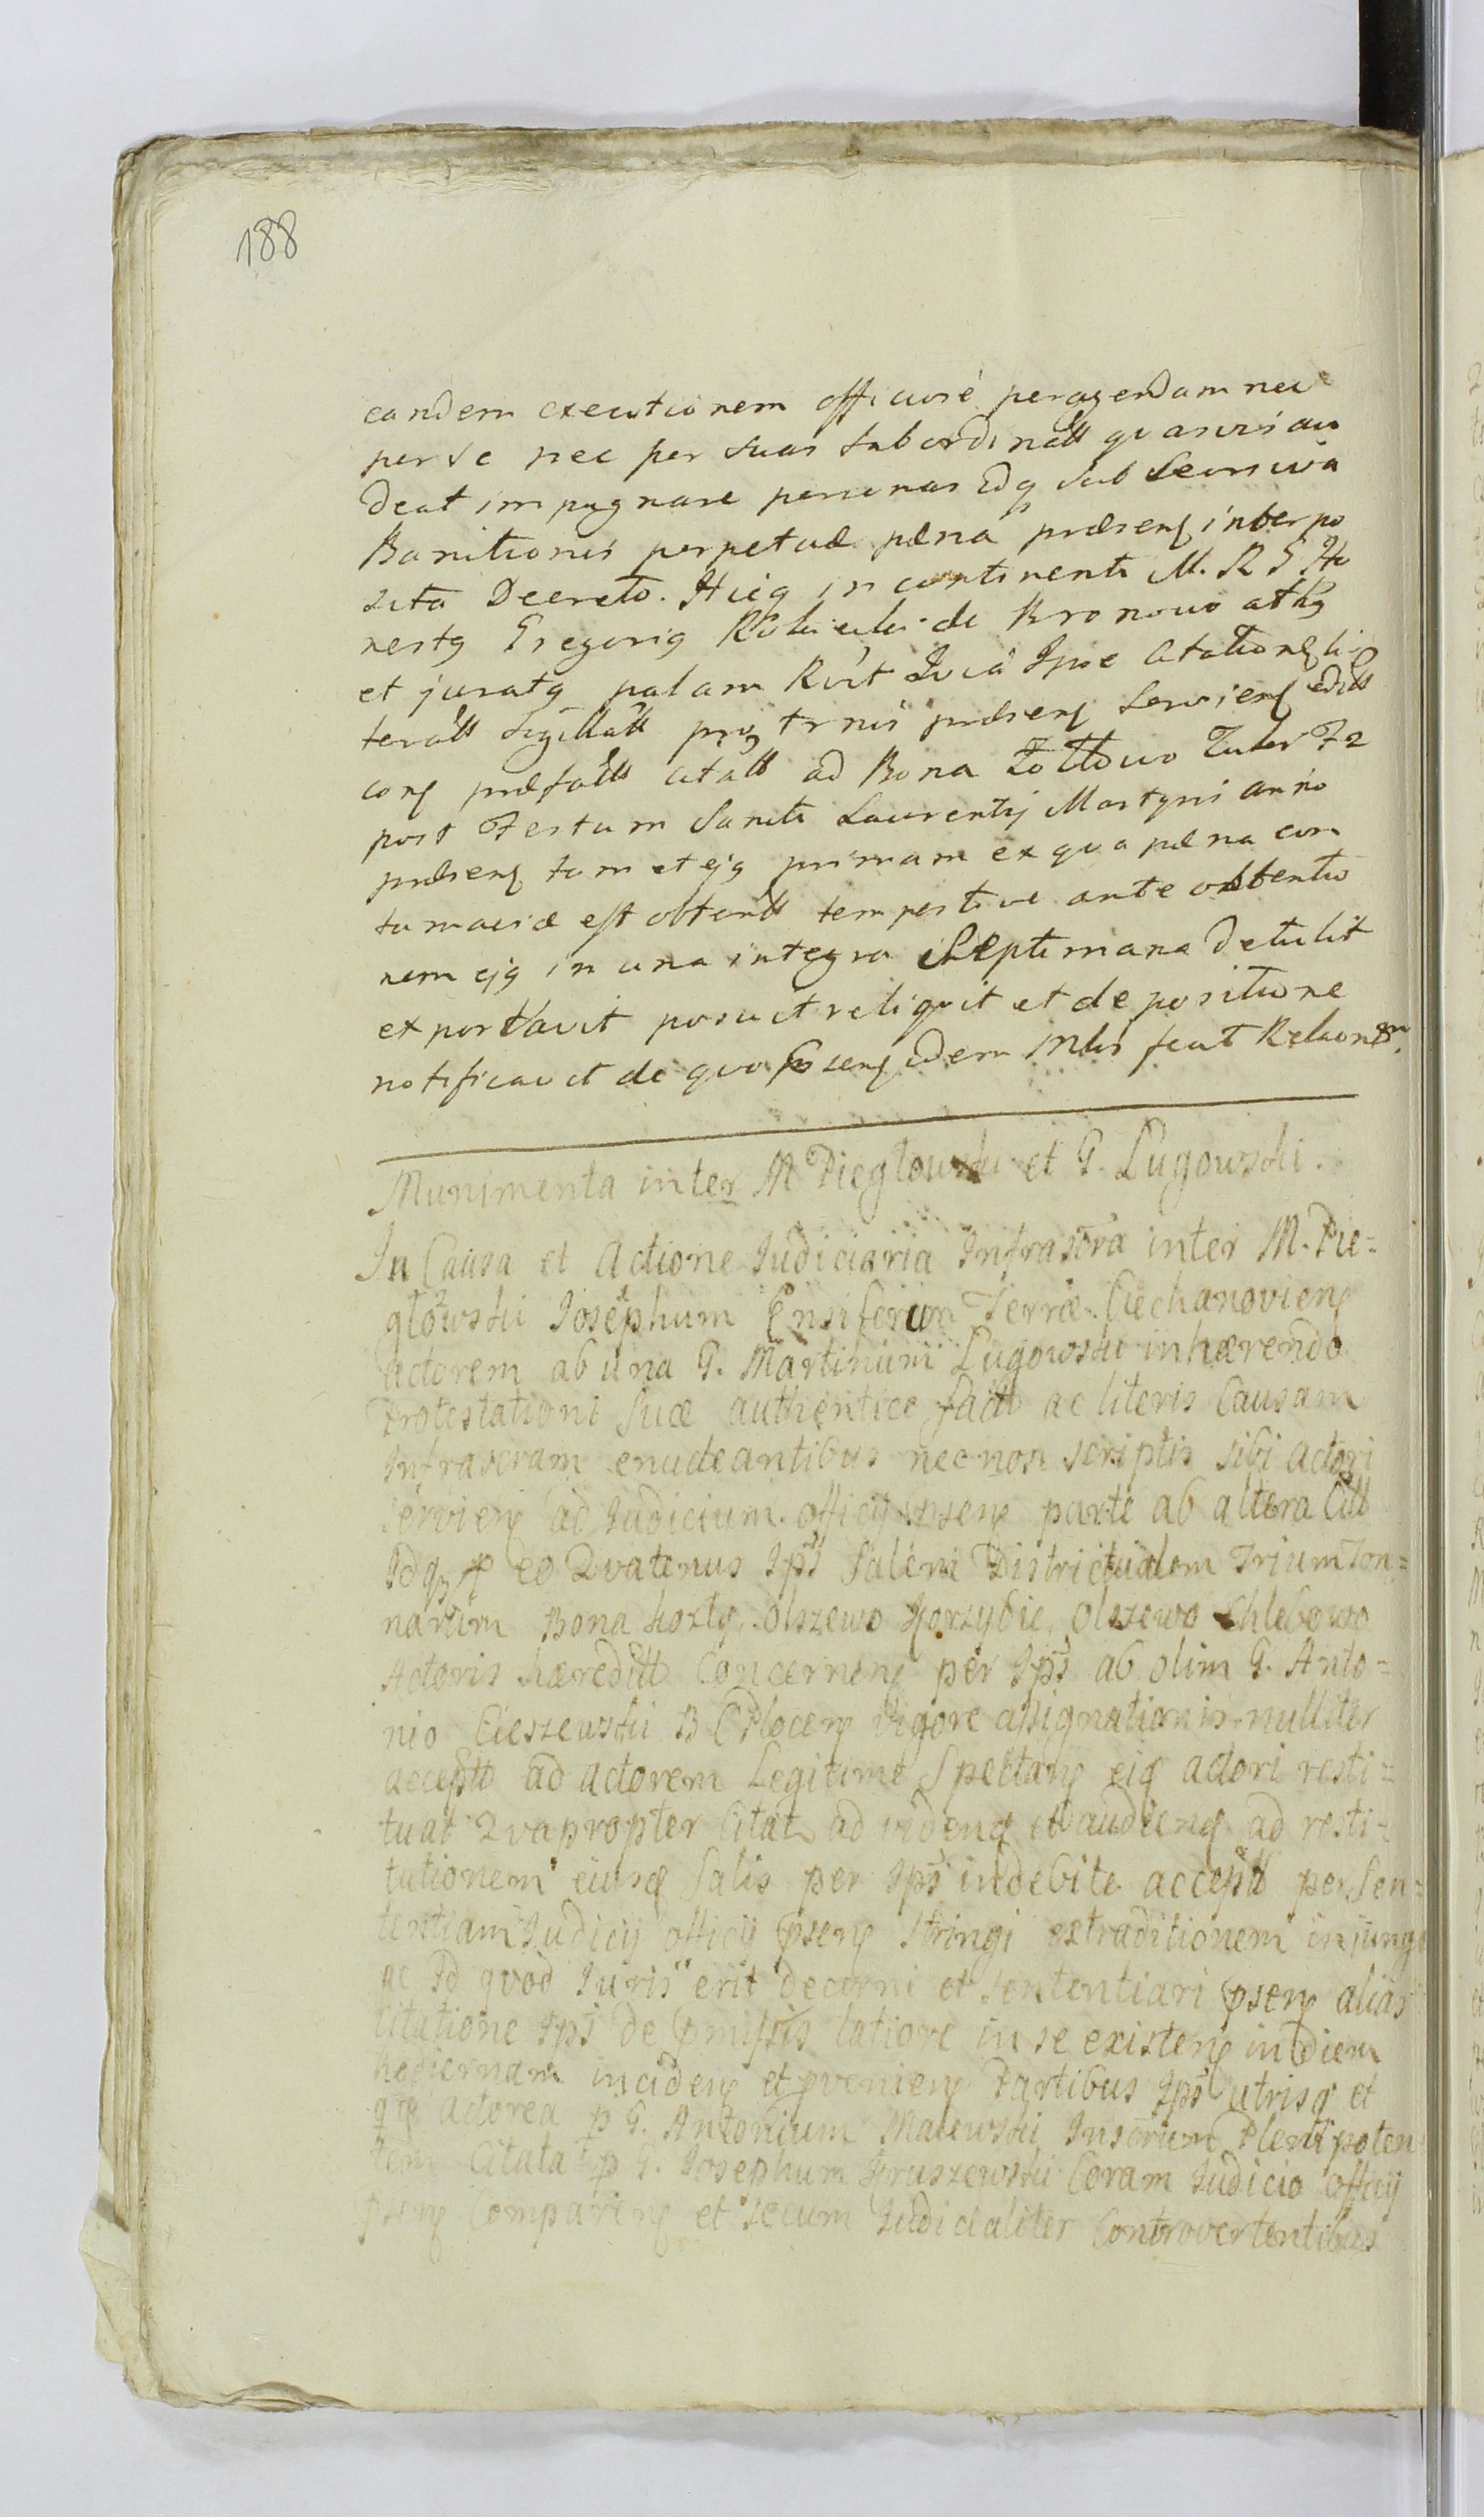 188
eandem executionem officiosé peragendam nec
per se nec per suas subordinatt quasvis au
deat impugnare personas idq sub seursiva
Banitionis perpetuæ pæna præsenş interpo
sita Decreto. Huiq in continenti M. R G Ho
nestq Gregoriq de Bronowo athq
et juratq palam Rvit Quia Ipse Citationeş li
teratt sigillatt præsenş servienş
conş præfatt citatt ad Bona
post Festum Sancti Laurentij Martyris anno
præsenş tam et ejq primam ex qua pæna con
tumaciæ est obtentt tempestive ante obtentio
nem ejq in una integra Septimana detulit
exportavit posuit reliquit et de positione
notificavit de quo psenş idem Mlis fecit Relaonem.
Munimenta inter M Piegłowski et G. Ługowski.
In Causa et Actione Judiciaria Infrascra inter M. Pie=
głowski Josephum Ensiferum Terræ Ciechanovienş
actorem ab una G. Martinum Ługowski inhærendo
Protestationi suæ authentice factt ac literis Causam
Infrascram enudeantibus nec non scriptis sibi actori
servienş ad Judicium officij psenş parte ab altera Citt
Idqz p eo Qvatenus Ips Salem Districtualem Trium Ton=
narum Bona hoxtq Olszewo Gorzybie, Olszewo Chlebowo
Actoris hæreditt Concernenş per Ips ab olim G. Anto=
nio Cieszewski B C Plocenş vigore assignationis nulliter
acceptt ad actorem Legitime Spectanş eiq actori resti=
tuat Qvapropter Citat ad videnş et audienş ad resti=
tutionem eiusq Salis per Ips indebite acceptt per Sen=
tentiam Judicij officij psenş stringi extraditionem injungi
ac Id quod Juris erit decerni et sententiari psenş alias
Citatione Ips de pmissis latiore in se existenş in diem
hodiernam incidenş et pvenienş Partibus Ips utrisq et
qæ actorea p G. Antonium Malewski Insorium Plenipoten
tem Citata p G. Josephum Gruszewski Coram Judicio officij
psenş Comparenş et secum Judicialiter Controvertentibus